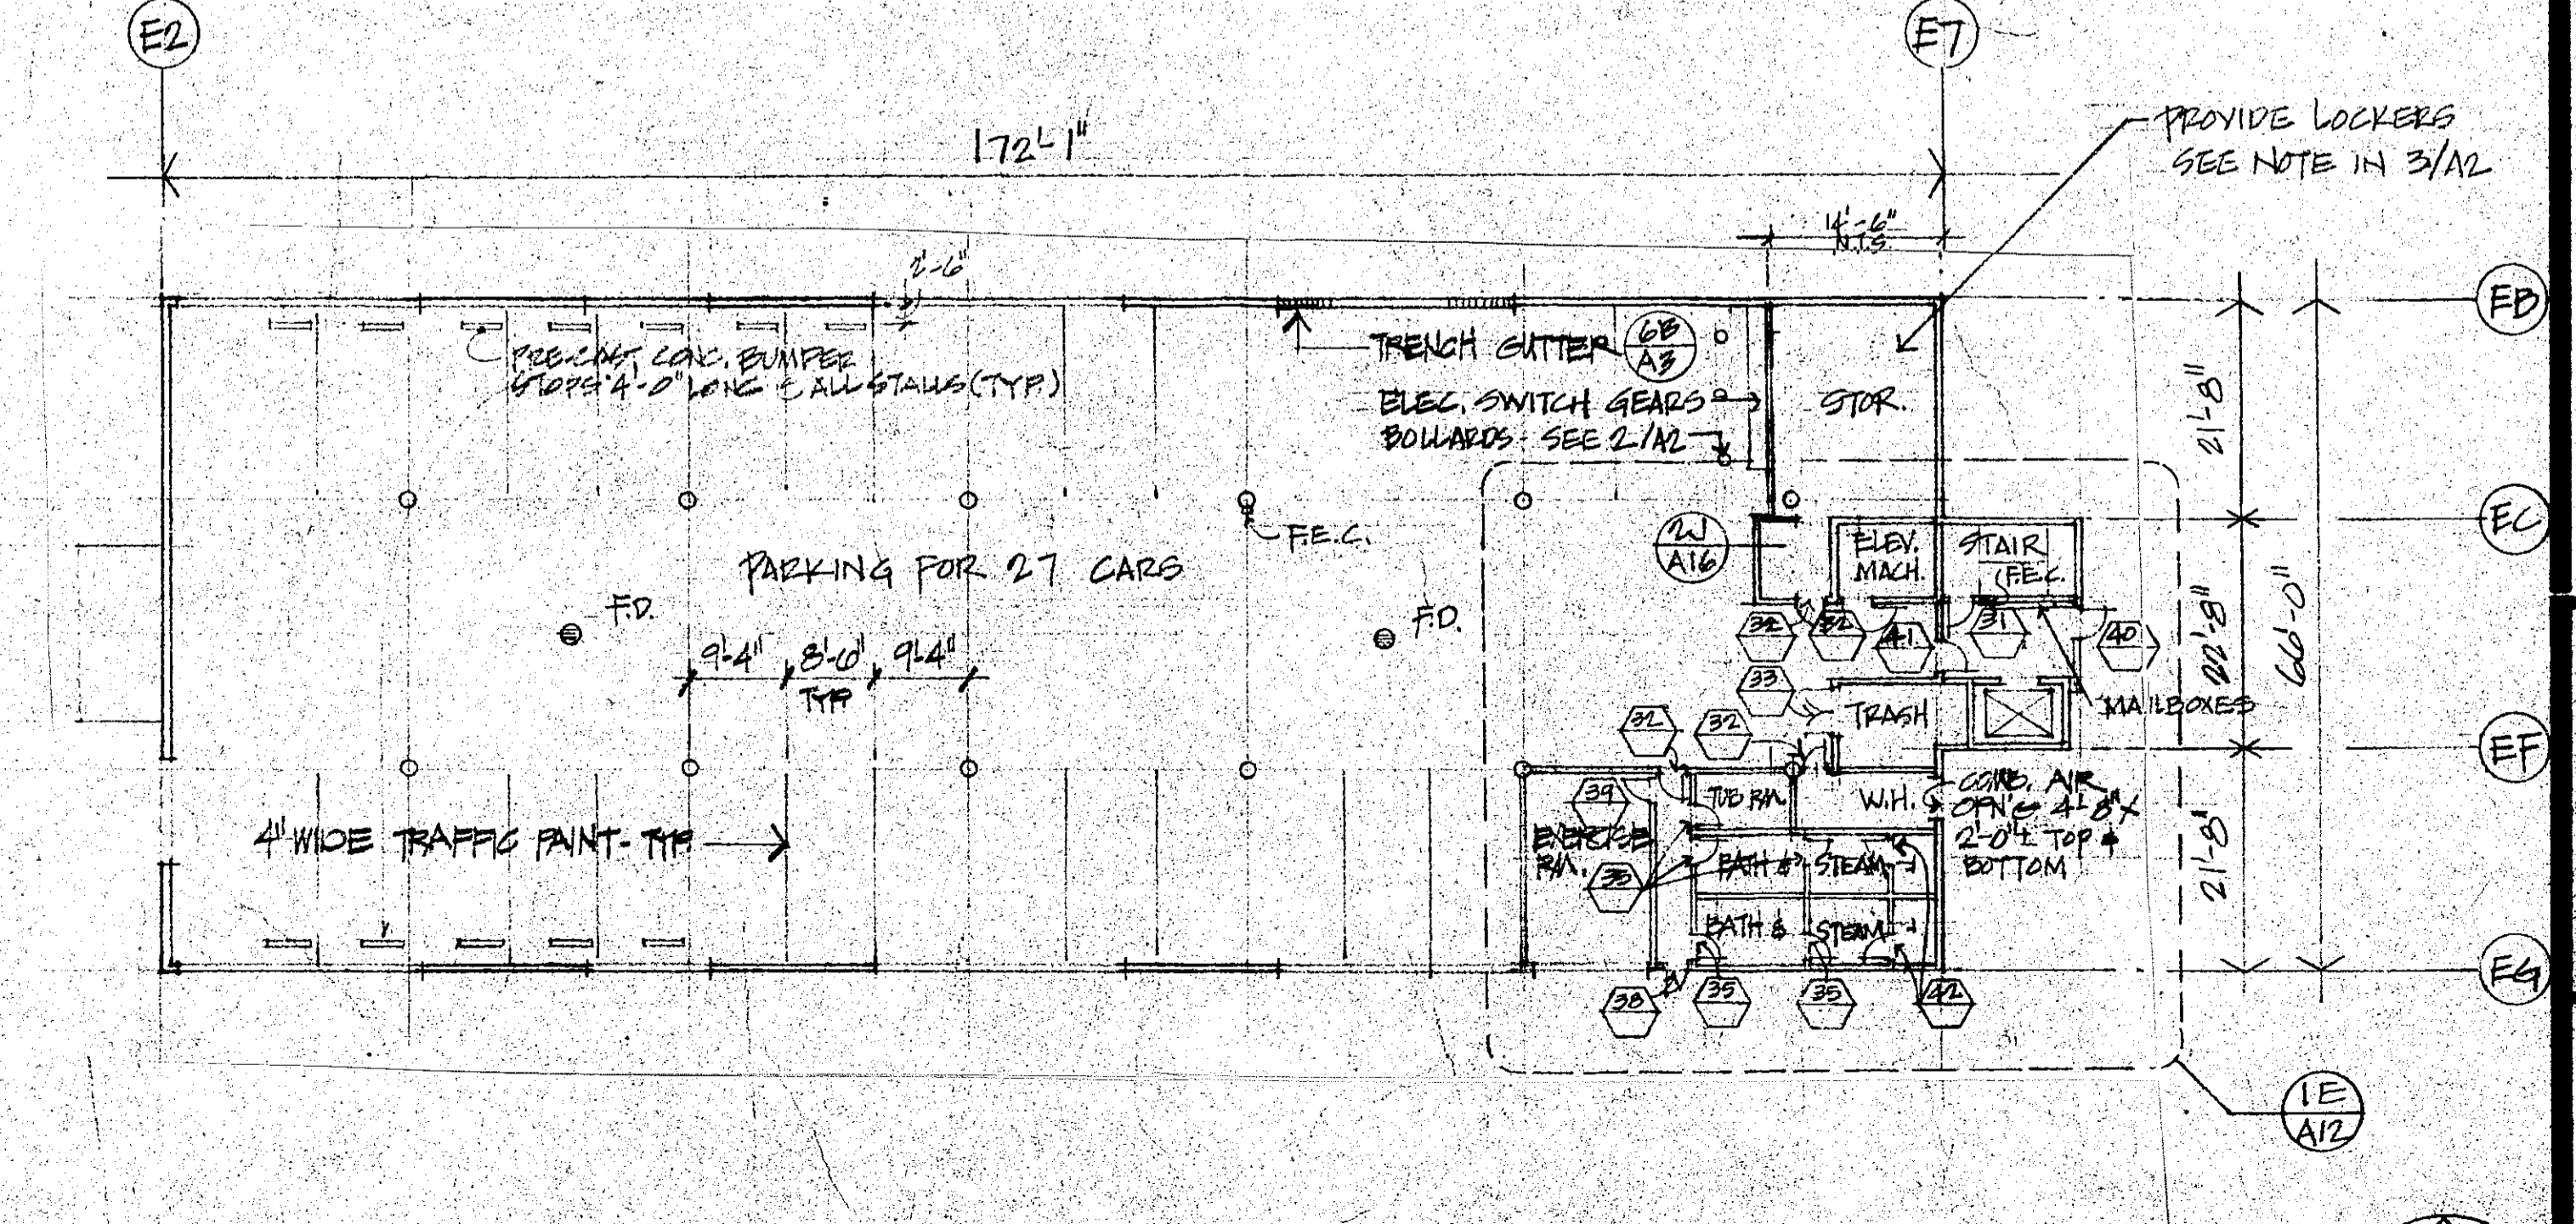 E2
E7
172'-1"
PROVIDE LOCKERS
SEE NOTE IN 3/A2
14'-6"
N.T.S.
2'-6"
EB
PRE-CAST CONC. BUMPER
STOPS 4'-0" LONG @ ALL STALLS (TYP.)
TRENCH GUTTER
6B
A3
ELEC. SWITCH GEARS
BOLLARDS - SEE 2/A2
STOR.
21'-8"
EC
F.E.C.
2J
A16
ELEV.
MACH.
STAIR
F.E.C.
PARKING FOR 27 CARS
F.D.
F.D.
9'-4"
8'-6"
9'-4"
TYP
32
32
41
31
40
22'-8"
66'-0"
33
TRASH
MAILBOXES
32
32
EF
39
TUB RM.
W.H.
COMB. AIR
OPN'G 4'-8" X
2'-0"± TOP &
BOTTOM
4" WIDE TRAFFIC PAINT - TYP.
EXERCISE
RM.
35
BATH &
STEAM
21'-8"
BATH &
STEAM
EG
38
35
35
42
1E
A12